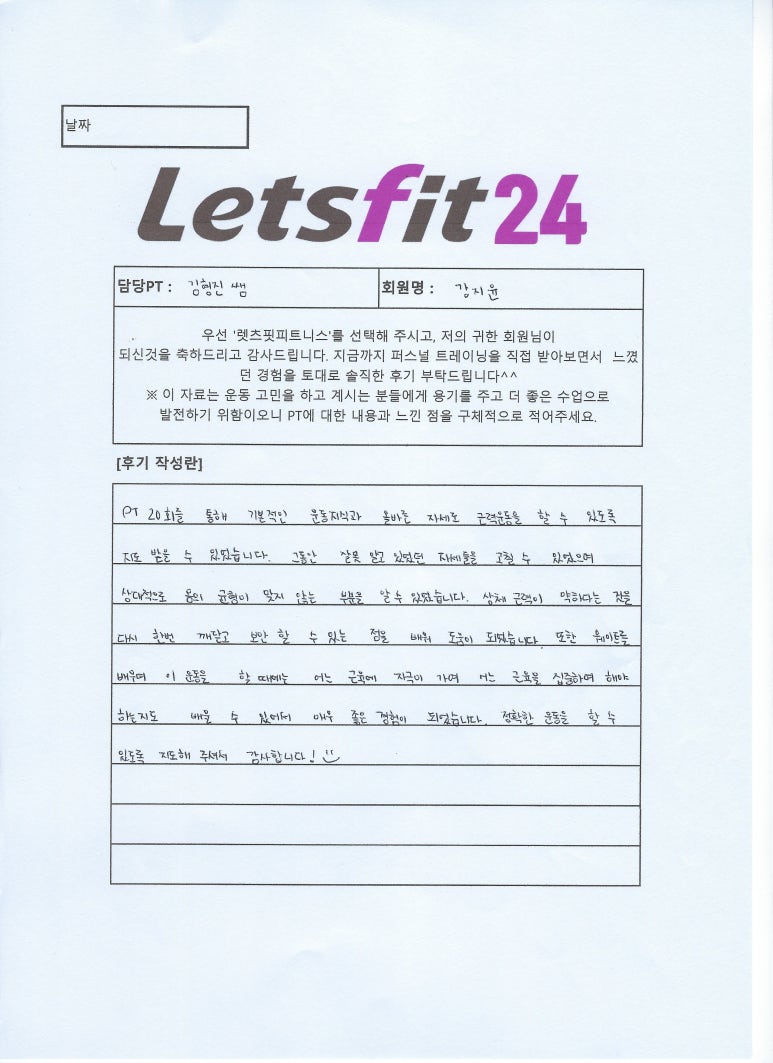 날짜
Letsfit24
담당PT : 김형진 쌤 회원명 : 강지윤
우선 '렛츠핏피트니스'를 선택해 주시고, 저의 귀한 회원님이
되신것을 축하드리고 감사드립니다. 지금까지 퍼스널 트레이닝을 직접 받아보면서 느꼈
던 경험을 토대로 솔직한 후기 부탁드립니다^^
※ 이 자료는 운동 고민을 하고 계시는 분들에게 용기를 주고 더 좋은 수업으로
발전하기 위함이오니 PT에 대한 내용과 느낀 점을 구체적으로 적어주세요.
[후기 작성란]
PT 20회를 통해 기본적인 운동지식과 올바른 자세로 근력운동을 할 수 있도록
지도 받을 수 있었습니다. 그동안 잘못 알고 있었던 자세들을 고칠 수 있었으며
상대적으로 몸의 균형이 맞지 않는 부분을 알 수 있었습니다. 상체 근력이 약하다는 것을
다시 한번 깨닫고 보안 할 수 있는 점을 배워 도움이 되었습니다. 또한 웨이트를
배우며 이 운동을 할 때에는 어느 근육에 자극이 가며 어느 근육을 집중하여 해야
하는지도 배울 수 있어서 매우 좋은 경험이 되었습니다. 정확한 운동을 할 수
있도록 지도해 주셔서 감사합니다!